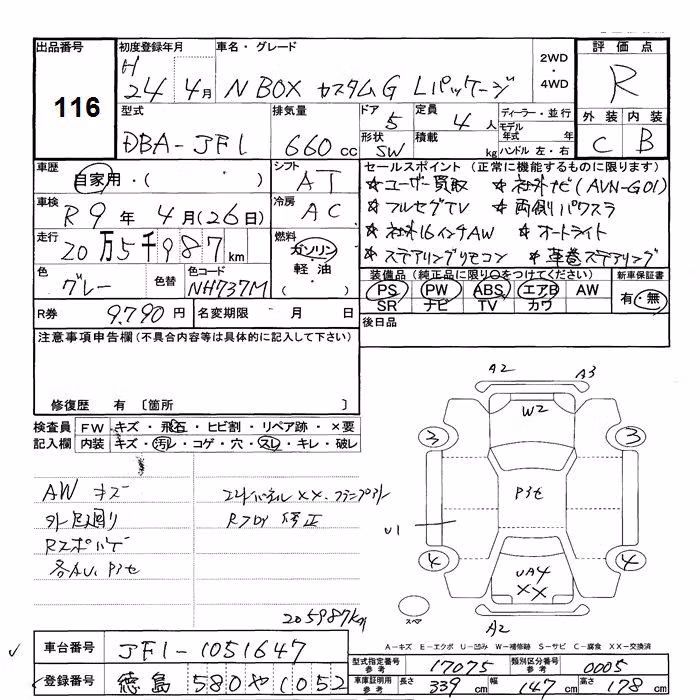 出品番号 116
初度登録年月 H 24 年 4月
車名・グレード N BOX カスタムG Lパッケージ
2WD ・ 4WD
評価点 R
外装 内装
C B
型式 DBA-JF1
排気量 660 cc
ドア 5
定員 4 人
形状 SW
積載 kg
ディーラー・並行
モデル年式 年
ハンドル 左・右
車歴 自家用・( ・ )
シフト AT
車検 R9年 4月(26日)
冷房 AC
走行 20万5千987 km
燃料 ガソリン 軽油 ( )
色 グレー
色替
色コード NH737M
セールスポイント (正常に機能するものに限ります)
☆ユーザー買取 ☆社外ナビ(AVN-G01)
☆フルセグTV ☆両側パワスラ
☆社外16インチAW ☆オートライト
☆ステアリングリモコン ☆革巻ステアリング
装備品 (純正品に限り○をつけてください)
PS PW ABS エアB AW
SR ナビ TV カワ
新車保証書
有・無
R券 9,790 円
名変期限 月 日
後日品
注意事項申告欄 (不具合内容等は具体的に記入して下さい)
修復歴 有 〔箇所 〕
検査員記入欄
FW キズ・飛石・ヒビ割・リペア跡・×要
内装 キズ・汚レ・コゲ・穴・スレ・キレ・破レ
AW キズ
外足廻り
各AU、P3セ
修正
205987km
A2 A3
W2
3 3
P3セ
U1
4 4
UA4
XX
スペ
A2
A-キズ E-エクボ U-凹み W-補修跡 S-サビ C-腐食 XX-交換済
車台番号 JF1-1051647
登録番号 徳島 580 や 1052
型式指定番号 参考 17075
類別区分番号 参考 0005
車庫証明用 参考 長さ 339 cm 幅 147 cm 高さ 178 cm